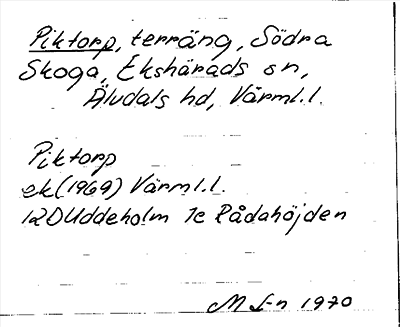 Piktorp, terräng, Södra
Skoga, Ekshärads sn,
Älvdals hd, Värml.l.
Piktorp
ek (1969) Värml.l.
12D Uddeholm 1c Rådahöjden
M L-n 1970